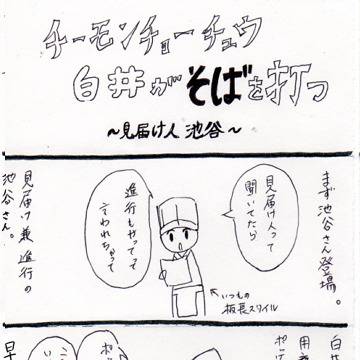 チーモンチョーチュウ
白井がそばを打つ
～見届け人 池谷～
まず池谷さん登場。
見届け人って
聞いてたら
進行もやってって
言われちゃって
←いつもの
板長スタイル
見届け兼進行の
池谷さん。